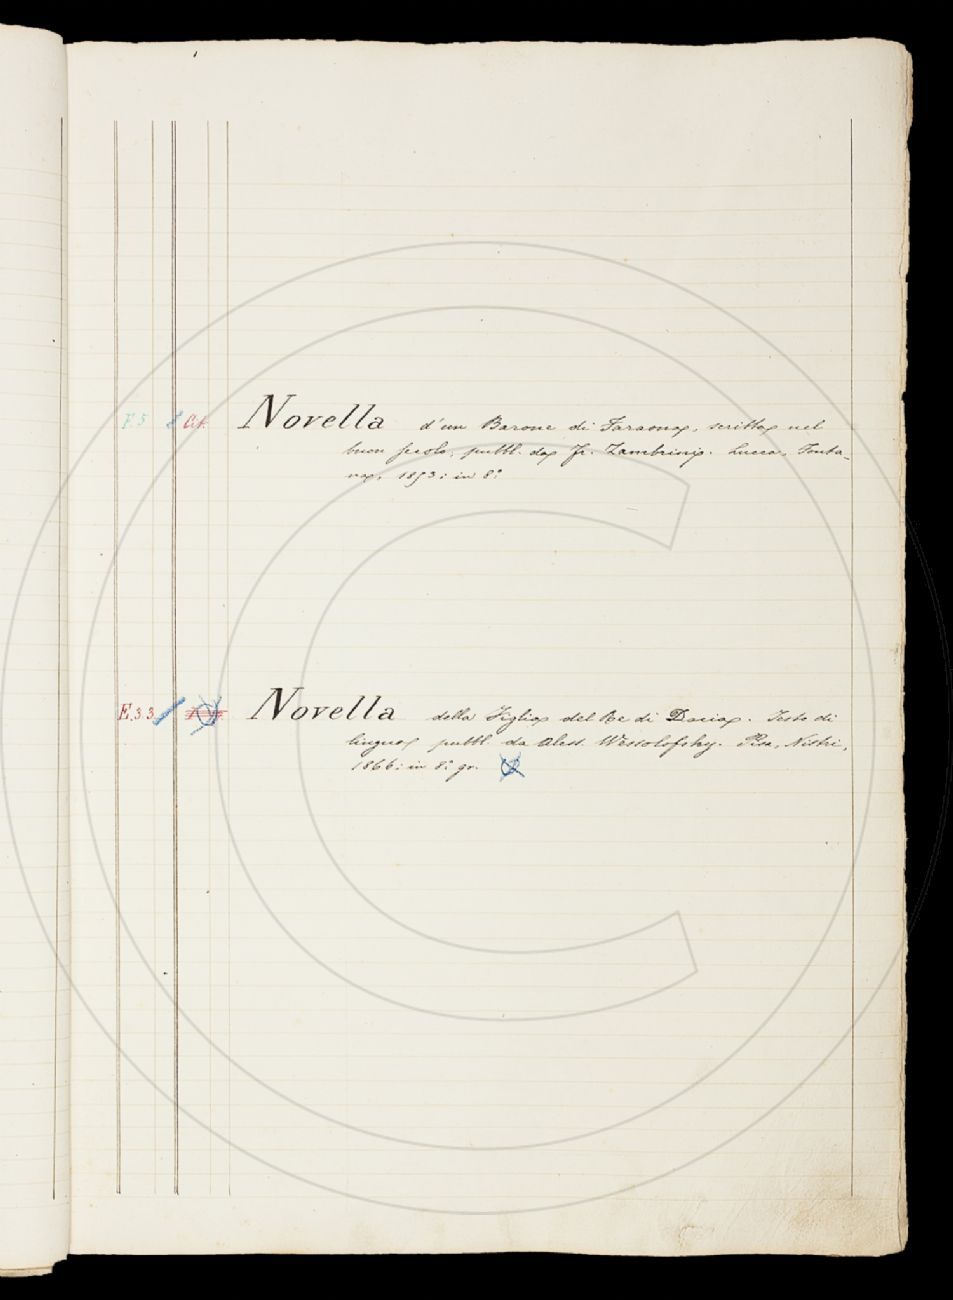 F.5 Novella d'un Barone di Faraona, scritta nel
buon secolo, pubbl. da Fr. Zambrini. Lucca, Fonta-
na, 1853: in 8.°
E.33 Novella della Figlia del Re di Dacia. Testo di
lingua pubbl. da Aless. Wesselofsky. Pisa, Nistri,
1866: in 8.° gr.